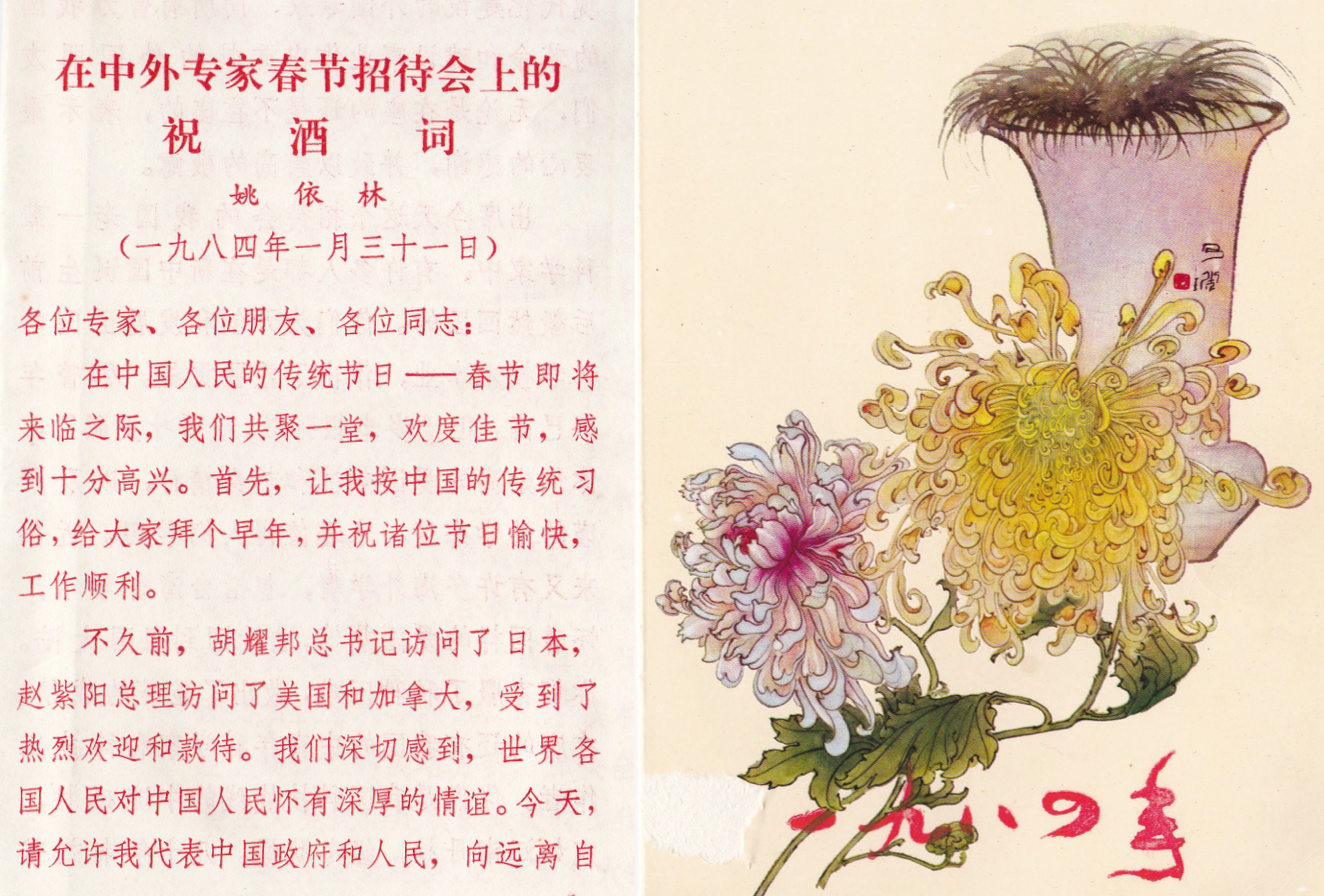 在中外专家春节招待会上的
祝酒词
姚依林
（一九八四年一月三十一日）
各位专家、各位朋友、各位同志：
在中国人民的传统节日——春节即将
来临之际，我们共聚一堂，欢度佳节，感
到十分高兴。首先，让我按中国的传统习
俗，给大家拜个早年，并祝诸位节日愉快，
工作顺利。
不久前，胡耀邦总书记访问了日本，
赵紫阳总理访问了美国和加拿大，受到了
热烈欢迎和款待。我们深切感到，世界各
国人民对中国人民怀有深厚的情谊。今天，
请允许我代表中国政府和人民，向远离自
一九八四年